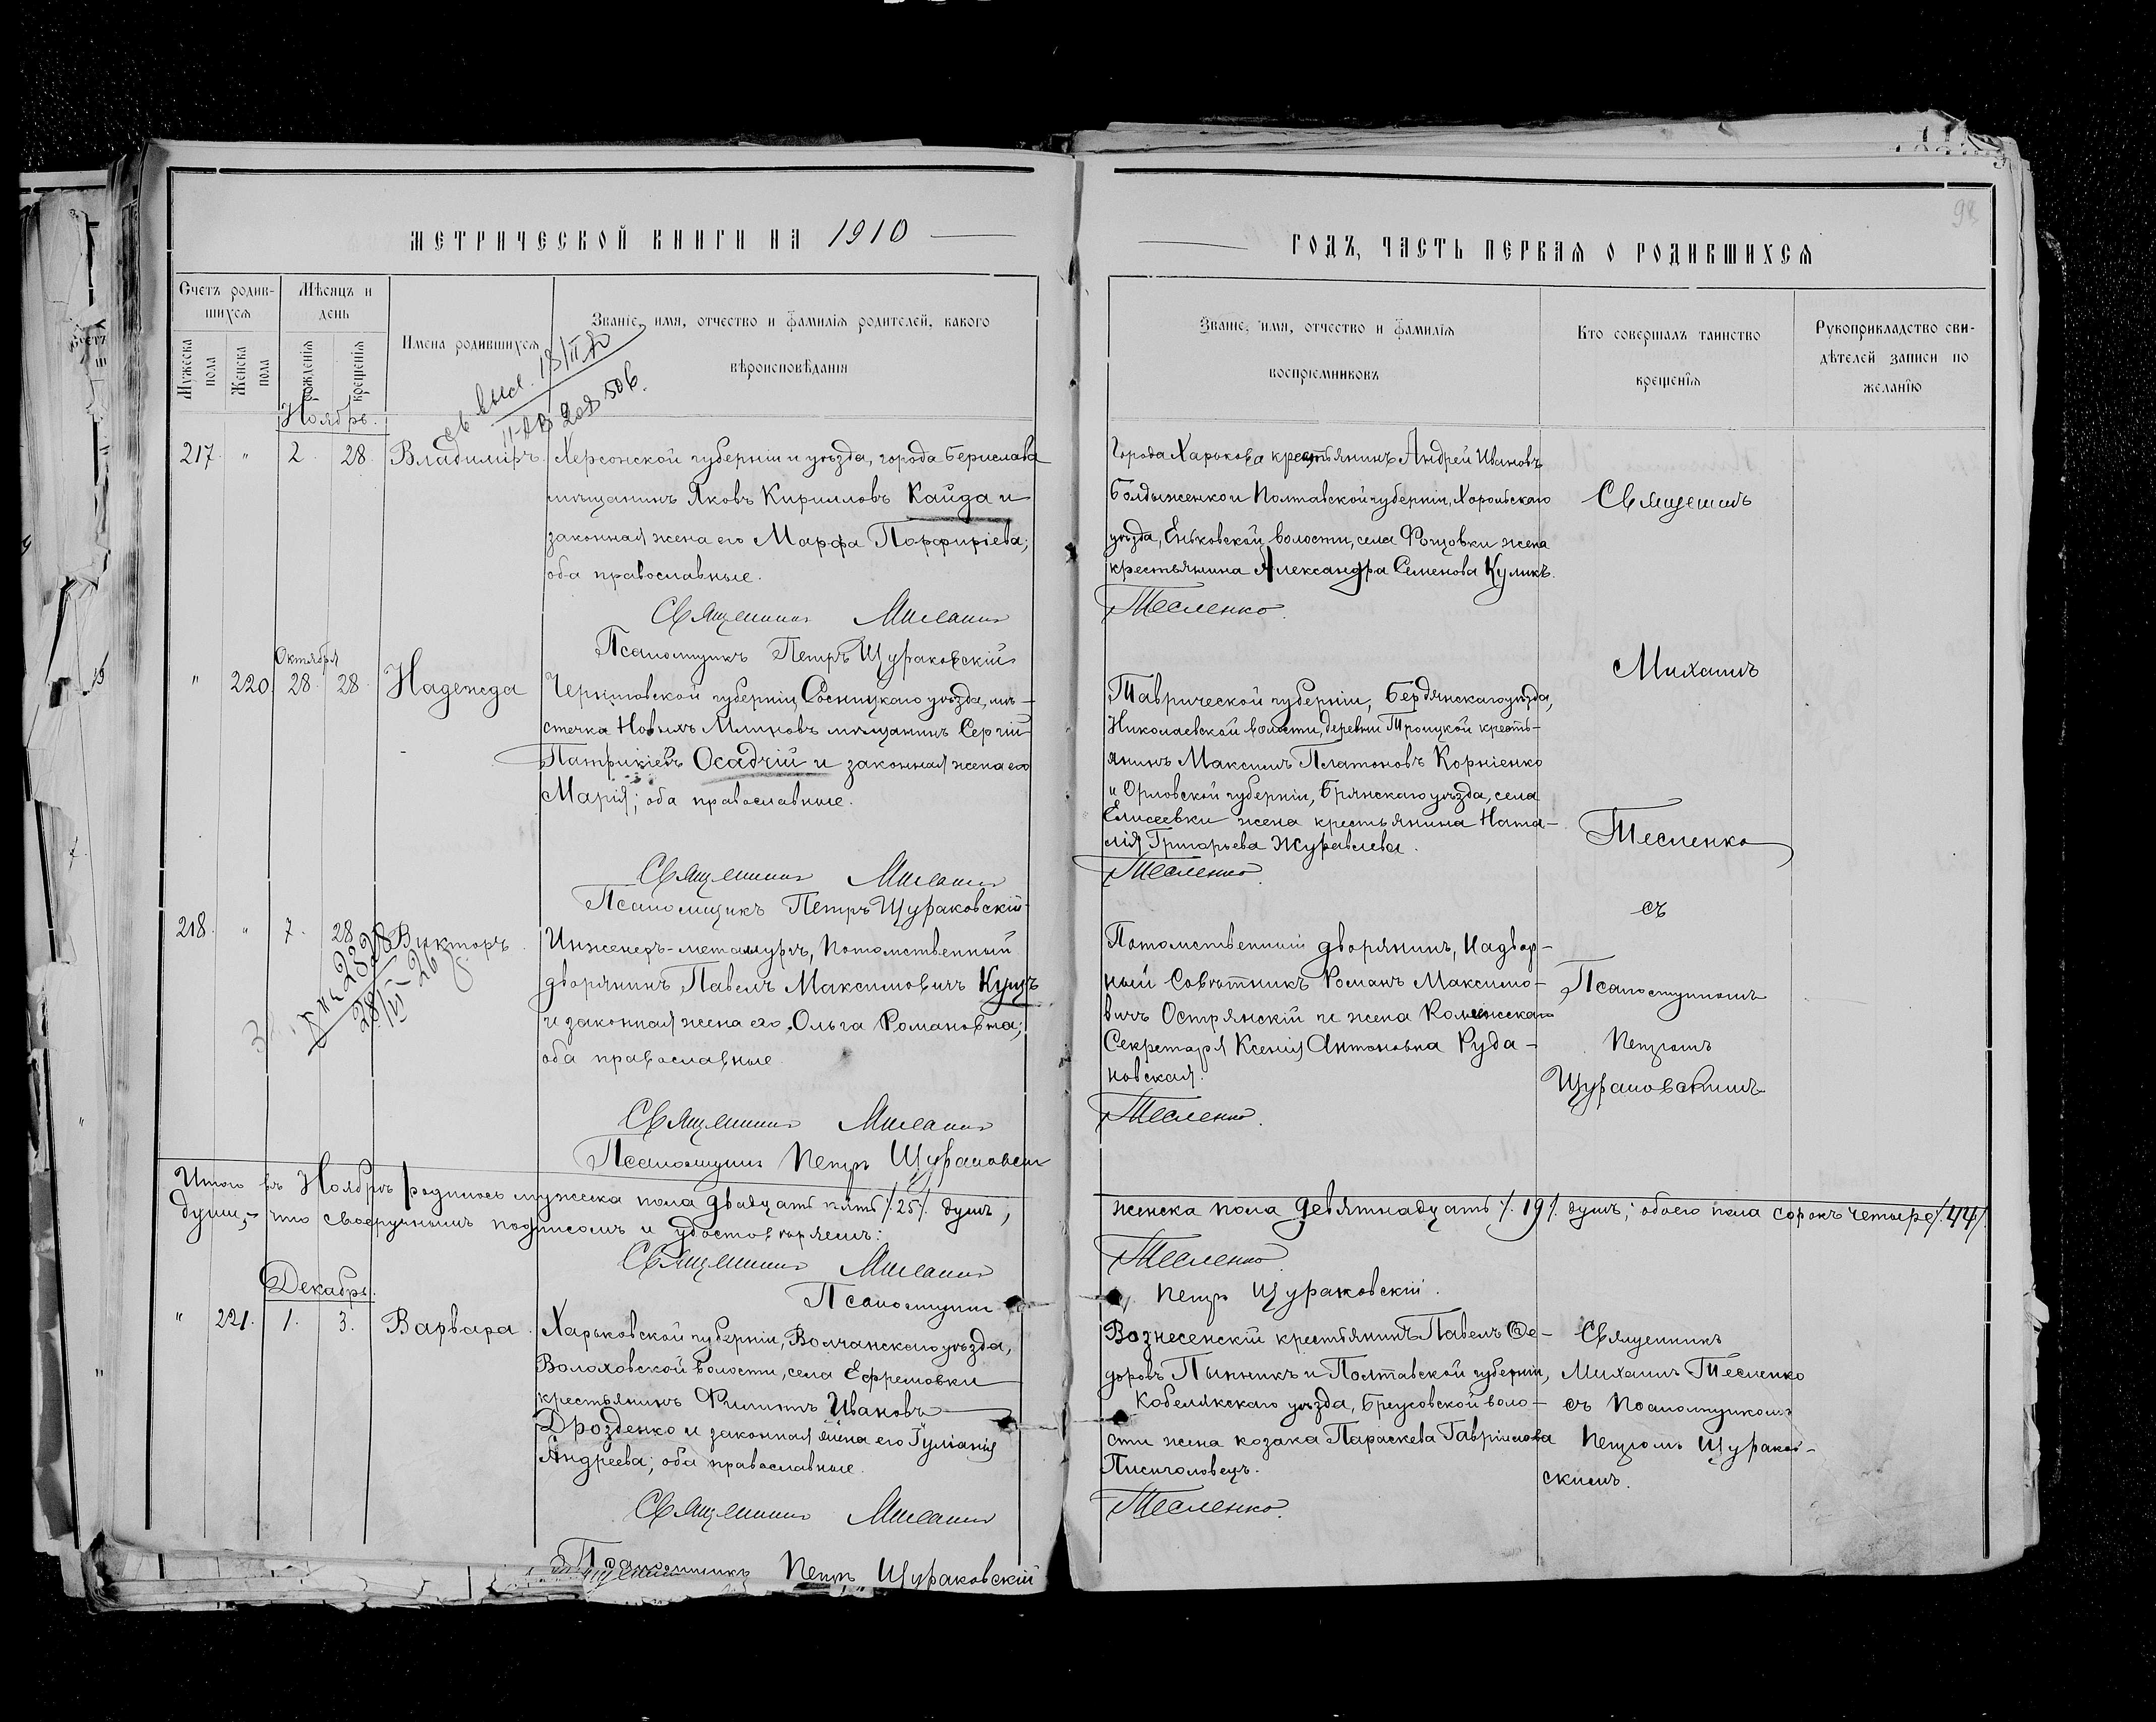 МЕТРИЧЕСКОЙ КНИГИ НА 1910
ГОДЪ, ЧАСТЬ ПЕРВАЯ О РОДИВШИХСЯ
98
Счетъ родив-
шихся
Мѣсяцъ и
день
Мужеска
пола
Женска
пола
рожденія
крещенія
Имена родившихся
Званіе, имя, отчество и фамилія родителей, какого
вѣроисповѣданія
Званіе, имя, отчество и фамилія
воспріемниковъ
Кто совершалъ таинство
крещенія
Рукоприкладство сви-
дѣтелей записи по
желанію
Ноябрь.
217 " 2. 28. Владиміръ.
Херсонской губерніи и уѣзда, города Берислава
мѣщанинъ Яковъ Кирилловъ Кайда и
законная жена его Марфа Порфиріева;
оба православные.
Священникъ
Псаломщикъ Петръ Щураковскій
Города Харькова крестьянинъ Андрей Ивановъ
Болдыженко и Полтавской губерніи, Хорольскаго
уѣзда, Еньковской волости, села Фощовки жена
крестьянина Александра Семенова Куликъ.
Тесленко
Октября
" 220. 28. 28. Надежда
Черниговской губерніи, Сосницкаго уѣзда, мѣ-
стечка Новыхъ Млиновъ мѣщанинъ Сергій
Патрикіевъ Осадчій и законная жена его
Марія; оба православные.
Священникъ
Псаломщикъ Петръ Щураковскій
Таврической губерніи, Бердянскаго уѣзда,
Николаевской волости, деревни Троицкой кресть-
янинъ Максимъ Платоновъ Корніенко
и Орловской губерніи, Брянскаго уѣзда, села
Елисеевки жена крестьянина Ната-
лія Григорьева Журавлева.
Тесленко
218. " 7. 28. Викторъ.
Инженеръ-металлургъ, Потомственный
дворянинъ Павелъ Максимовичъ Кущъ
и законная жена его, Ольга Романовна;
оба православные.
Священникъ
Псаломщикъ Петръ Щураковскій
Потомственный дворянинъ, Надвор-
ный Совѣтникъ Романъ Максимо-
вичъ Острянскій и жена Коллежскаго
Секретаря Ксенія Антоновна Руда-
новская.
Тесленко.
Священникъ
Михаилъ
Тесленко
съ
Псаломщикомъ
Петромъ
Щураковскимъ
Итого въ Ноябрѣ родилось мужеска пола двадцать пять /.25/. душъ,
женска пола девятнадцать /.19/. душъ; обоего пола сорокъ четыре /.44/.
душъ,- что своеручнымъ подписомъ и удостовѣряемъ:
Священникъ
Тесленко
Псаломщикъ
Петръ Щураковскій.
Декабрь.
" 221. 1. 3. Варвара.
Харьковской губерніи, Волчанскаго уѣзда,
Волоховской волости, села Ефремовки
крестьянинъ Филиппъ Ивановъ
Дрозденко и законная жена его Іуліанія
Андреева; оба православные.
Священникъ
Псаломщикъ Петръ Щураковскій
Вознесенскій крестьянинъ Павелъ Ѳе-
доровъ Пынникъ и Полтавской губерніи,
Кобелякскаго уѣзда, Бреусовской воло-
сти жена козака Параскева Гавріилова
Писчоловецъ.
Тесленко.
Священникъ
Михаилъ Тесленко
съ Псаломщикомъ
Петромъ Щураков-
скимъ.